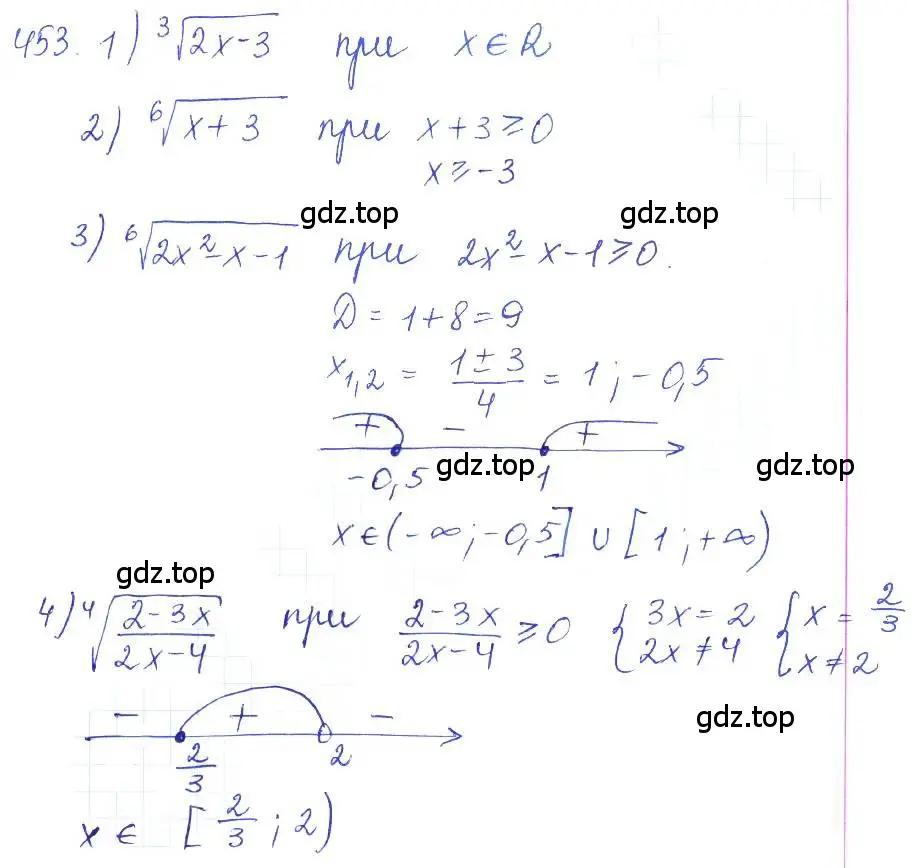 453. 1) ∛(2x-3) при x ∈ R
2) ⁶√(x+3) при x+3 ≥ 0
x ≥ -3
gdz.top gdz.top
3) ⁶√(2x²-x-1) при 2x²-x-1 ≥ 0.
D = 1+8 = 9
x₁,₂ = (1±3)/4 = 1; -0,5
+ - +
-0,5 gdz.top 1 gdz.top
x ∈ (-∞; -0,5] ∪ [1; +∞)
gdz.top
4) ⁴√((2-3x)/(2x-4)) при (2-3x)/(2x-4) ≥ 0 { 3x = 2 { x = 2/3
2x ≠ 4 x ≠ 2
- + - gdz.top
2/3 2
x ∈ [2/3; 2)